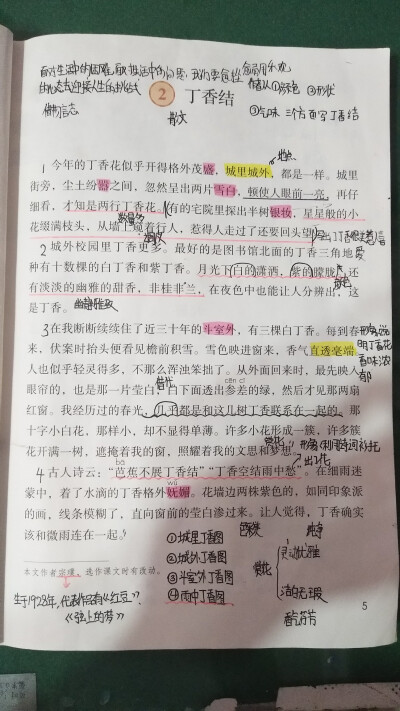 面对生活中的困难
2 丁香结
散文
作者从①颜色 ②形状
③气味 三个方面写丁香结
地点
1 今年的丁香花似乎开得格外茂盛，城里城外，都是一样。城里
街旁，尘土纷嚣之间，忽然呈出两片雪白，顿使人眼前一亮，再仔
细看，才知是两行丁香花。有的宅院里探出半树银妆，星星般的小
花缀满枝头，从墙上窥着行人，惹得人走过了还要回头望。
2 城外校园里丁香更多。最好的是图书馆北面的丁香三角地，
种有十数棵的白丁香和紫丁香。月光下白的潇洒，紫的朦胧。还
有淡淡的幽雅的甜香，非桂非兰，在夜色中也能让人分辨出，这
是丁香。
幽静雅致
颜色
3 在我断断续续住了近三十年的斗室外，有三棵白丁香。每到春
来，伏案时抬头便看见檐前积雪。雪色映进窗来，香气直透毫端。
人也似乎轻灵得多，不那么浑浊笨拙了。从外面回来时，最先映入
眼帘的，也是那一片莹白，白下面透出参差的绿，然后才见那两扇
红窗。我经历过的春光，几乎都是和这几树丁香联系在一起的。那
十字小白花，那样小，却不显得单薄。许多小花形成一簇，许多簇
花开满一树，遮掩着我的窗，照耀着我的文思和梦想。
cēn cī
4 古人诗云：“芭蕉不展丁香结”“丁香空结雨中愁”。在细雨迷
bā
蒙中，着了水滴的丁香格外妩媚。花墙边两株紫色的，如同印象派
wǔ
的画，线条模糊了，直向窗前的莹白渗过来。让人觉得，丁香确实
该和微雨连在一起。
①城里丁香图
②城外丁香图
③斗室外丁香图
④雨中丁香图
赏花
灵动优雅
洁白无瑕
香气芬芳
本文作者宗璞，选作课文时有改动。
生于1928年，代表作品有《红豆》、
《弦上的梦》
5